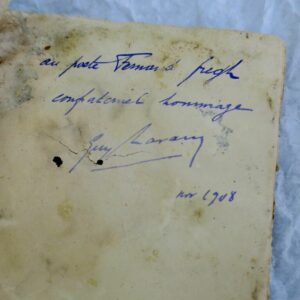 au poète Fernand Gregh
confraternel hommage
Guy Lavaud
nov 1908